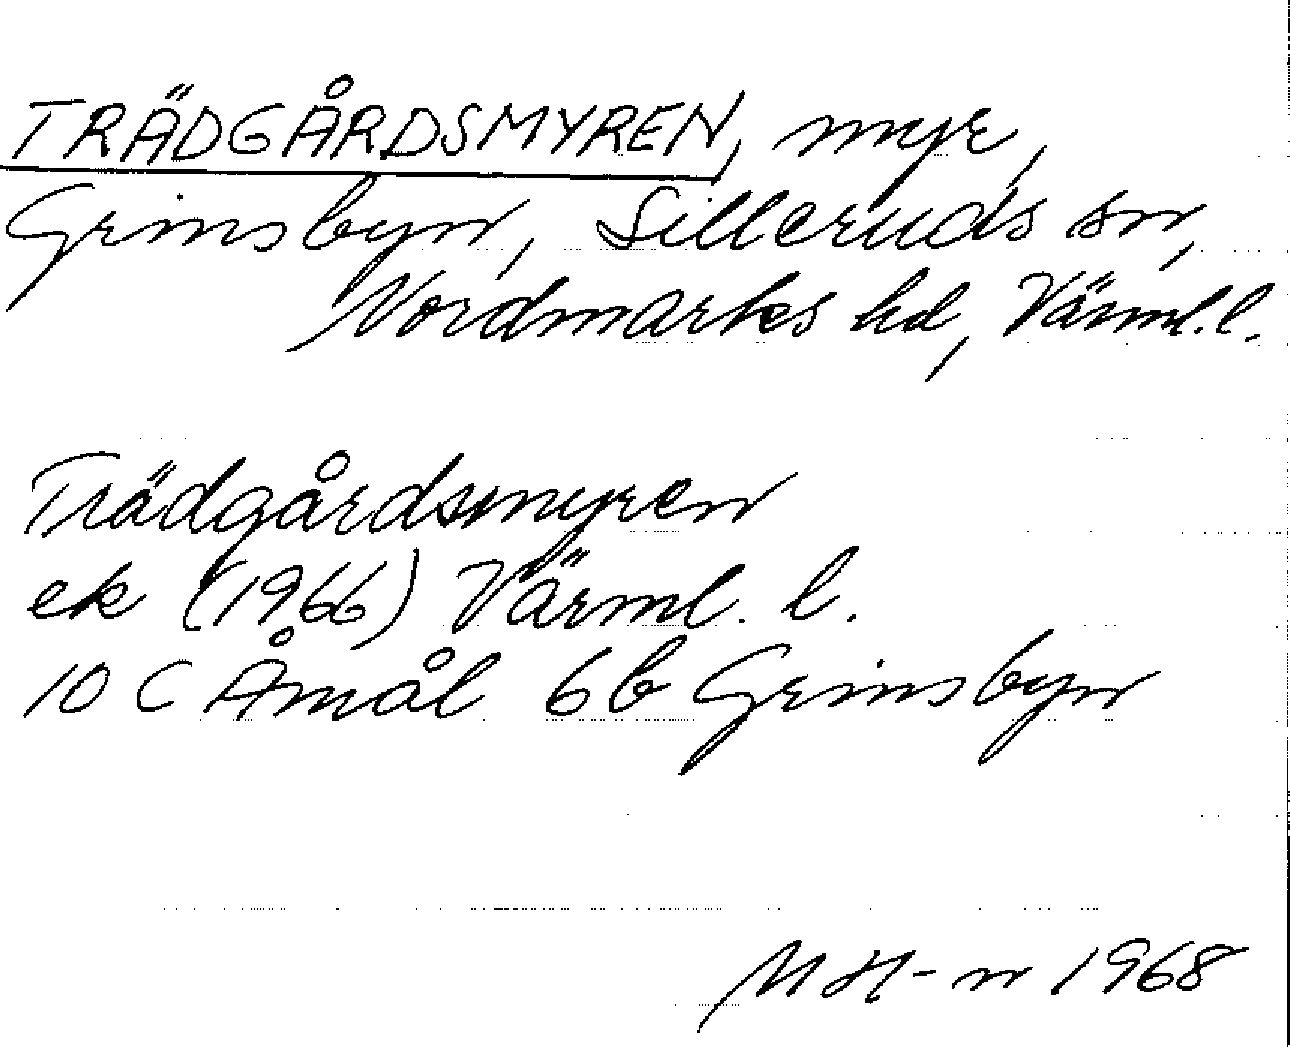 TRÄDGÅRDSMYREN, myr,
Grinsbyn, Silleruds sn,
Nordmarks hd, Värml. l.
Trädgårdsmyren
ek (1966) Värml. l.
10 C Åmål 6b Grinsbyn
MH-n 1968